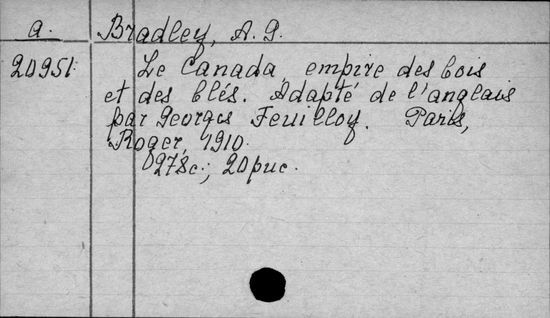 a. Bradley, A. G.
20951 Le Canada, empire des bois
et des blés. Adapté de l'anglais
par Georges Feuilloy. Paris,
Roger, 1910.
278c.; 20 рис.